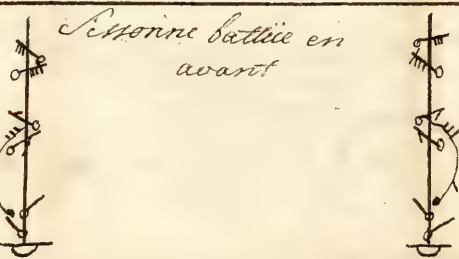 Sissonne battüe en
avant